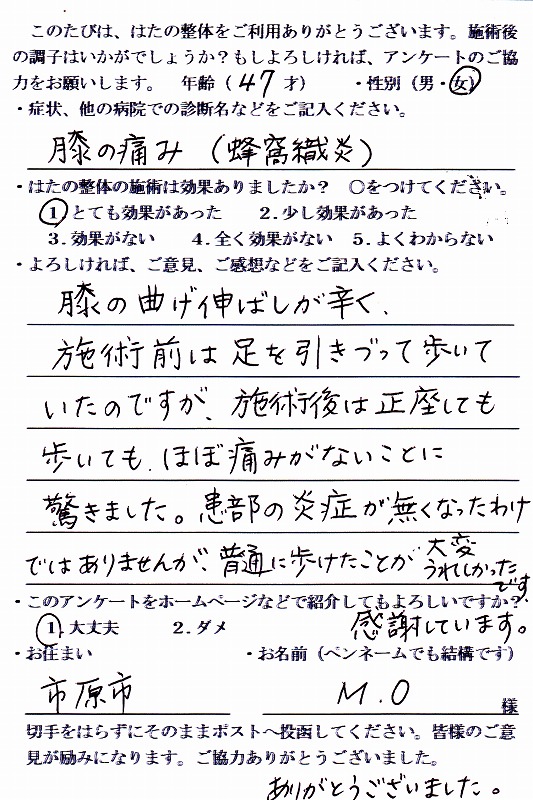 このたびは、はたの整体をご利用ありがとうございます。施術後
の調子はいかがでしょうか?もしよろしければ、アンケートのご協
力をお願いします。 年齢(47才) ・性別(男・女)
・症状、他の病院での診断名などをご記入ください。
膝の痛み(蜂窩織炎)
・はたの整体の施術は効果ありましたか? ○をつけてください。
1.とても効果があった 2.少し効果があった
3.効果がない 4.全く効果がない 5.よくわからない
・よろしければ、ご意見、ご感想などをご記入ください。
膝の曲げ伸ばしが辛く、
施術前は足を引きづって歩いて
いたのですが、施術後は正座しても
歩いても、ほぼ痛みがないことに
驚きました。患部の炎症が無くなったわけ
ではありませんが、普通に歩けたことが大変
うれしかった
です
・このアンケートをホームページなどで紹介してもよろしいですか?
1.大丈夫 2.ダメ 感謝しています。
・お住まい ・お名前(ペンネームでも結構です)
市原市 M.O 様
切手をはらずにそのままポストへ投函してください。皆様のご意
見が励みになります。ご協力ありがとうございました。
ありがとうございました。